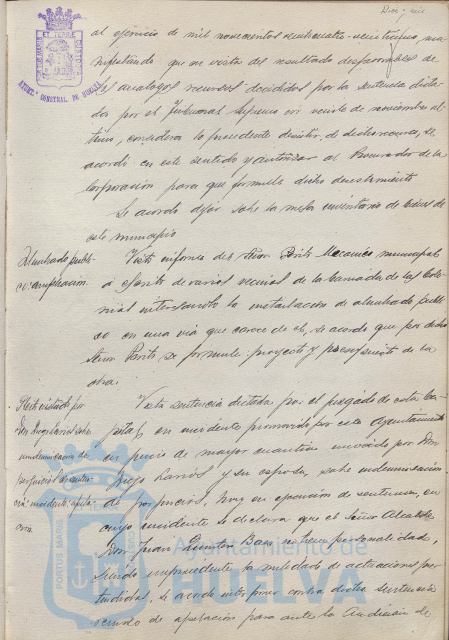 Diez y seis
al ejercicio de mil novecientos veinticuatro-veinticinco, ma-
nifestando que en vista del resultado desfavorable de
los analogos recursos decididos por la sentencia dicta-
da por el Tribunal Supremo en veinte de noviembre úl-
timo, considera lo procedente desistir de dicho recurso, se
acordó en este sentido y autorizar al Procurador de la
Corporación para que formule dicho desestimiento
Se acordó dejar sobre la mesa inventario de bienes de
este municipio
Alumbrado públi-
co: ampliación.
Visto informe del Señor Perito Mecanico municipal
á escrito de varios vecinos de la barriada de la Colo-
nial interesando la instalación de alumbrado públi-
co en una via que carece de él, se acordó que por dicho
Señor Perito se formule proyecto y presupuesto de la
obra.
Vista sentencia dictada por el juzgado de esta Ca-
pital en incidente promovido por este Ayuntamiento
en juicio de mayor cuantia incoado por Don
y su esposa, sobre indemnización
de perjuicios, hoy en ejecución de sentencia, en
cuyo incidente se declara que el Señor Alcalde
Don Juan Quintero Baez no tiene personalidad,
siendo improcedente la nulidad de actuaciones pre-
tendidas, se acordó interponer contra dicha sentencia
recurso de apelación para ante la Audiencia de
PORTUS MARIS ET TERRE CUSTODIA
AYUNTº CONSTNAL. DE HUELVA
Ayuntamiento de
HUELVA